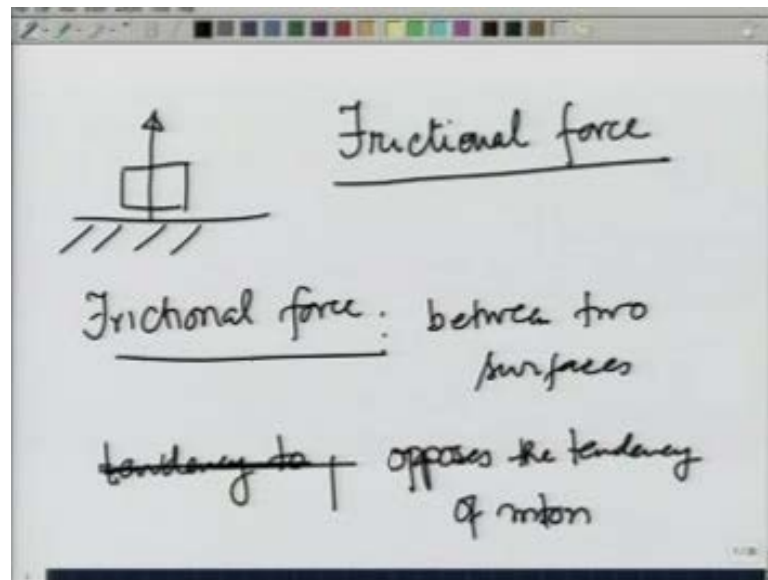 Frictional force
Frictional force : between two
surfaces
tendency to opposes the tendency
of motion